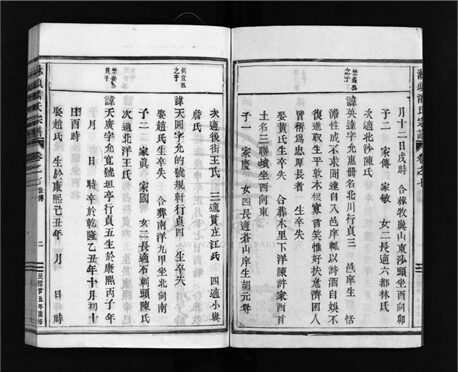 月十二日戌時 合葬牧襄山東沙頭坐西向卯
子二 家傳 家敏 女二長適六都林氏
次適北沙陳氏
諱英達字允惠冊名北川行貞三 邑庠生 恬
澹性成不求聞達自入邑庠輒以詩酒自娛不
復進取生平敦木根寡言笑惟好扶意濟困人
皆稱為忠厚長者 生卒失
娶黃氏生卒失 合葬木里下洋陳許家西首
土名三聯墳坐西向東
子一 家慶 女四長適蒼山庠生胡元舜
次適後街王氏 三適貫庄江氏 四適小嶴
詹氏
諱天圓字允的號規軒行貞四 生卒失
娶趙氏生卒失 合葬南洋九甲坐北向南
子二 家眞 家國 女二長適石刺頭陳氏
次適北洋王氏
諱天廣字允寬號坦亭行貞五生於康熙丙子年
月 日 時卒於乾隆乙丑年十月初十
日酉時
娶趙氏 生於康熙己丑年 月 日 時